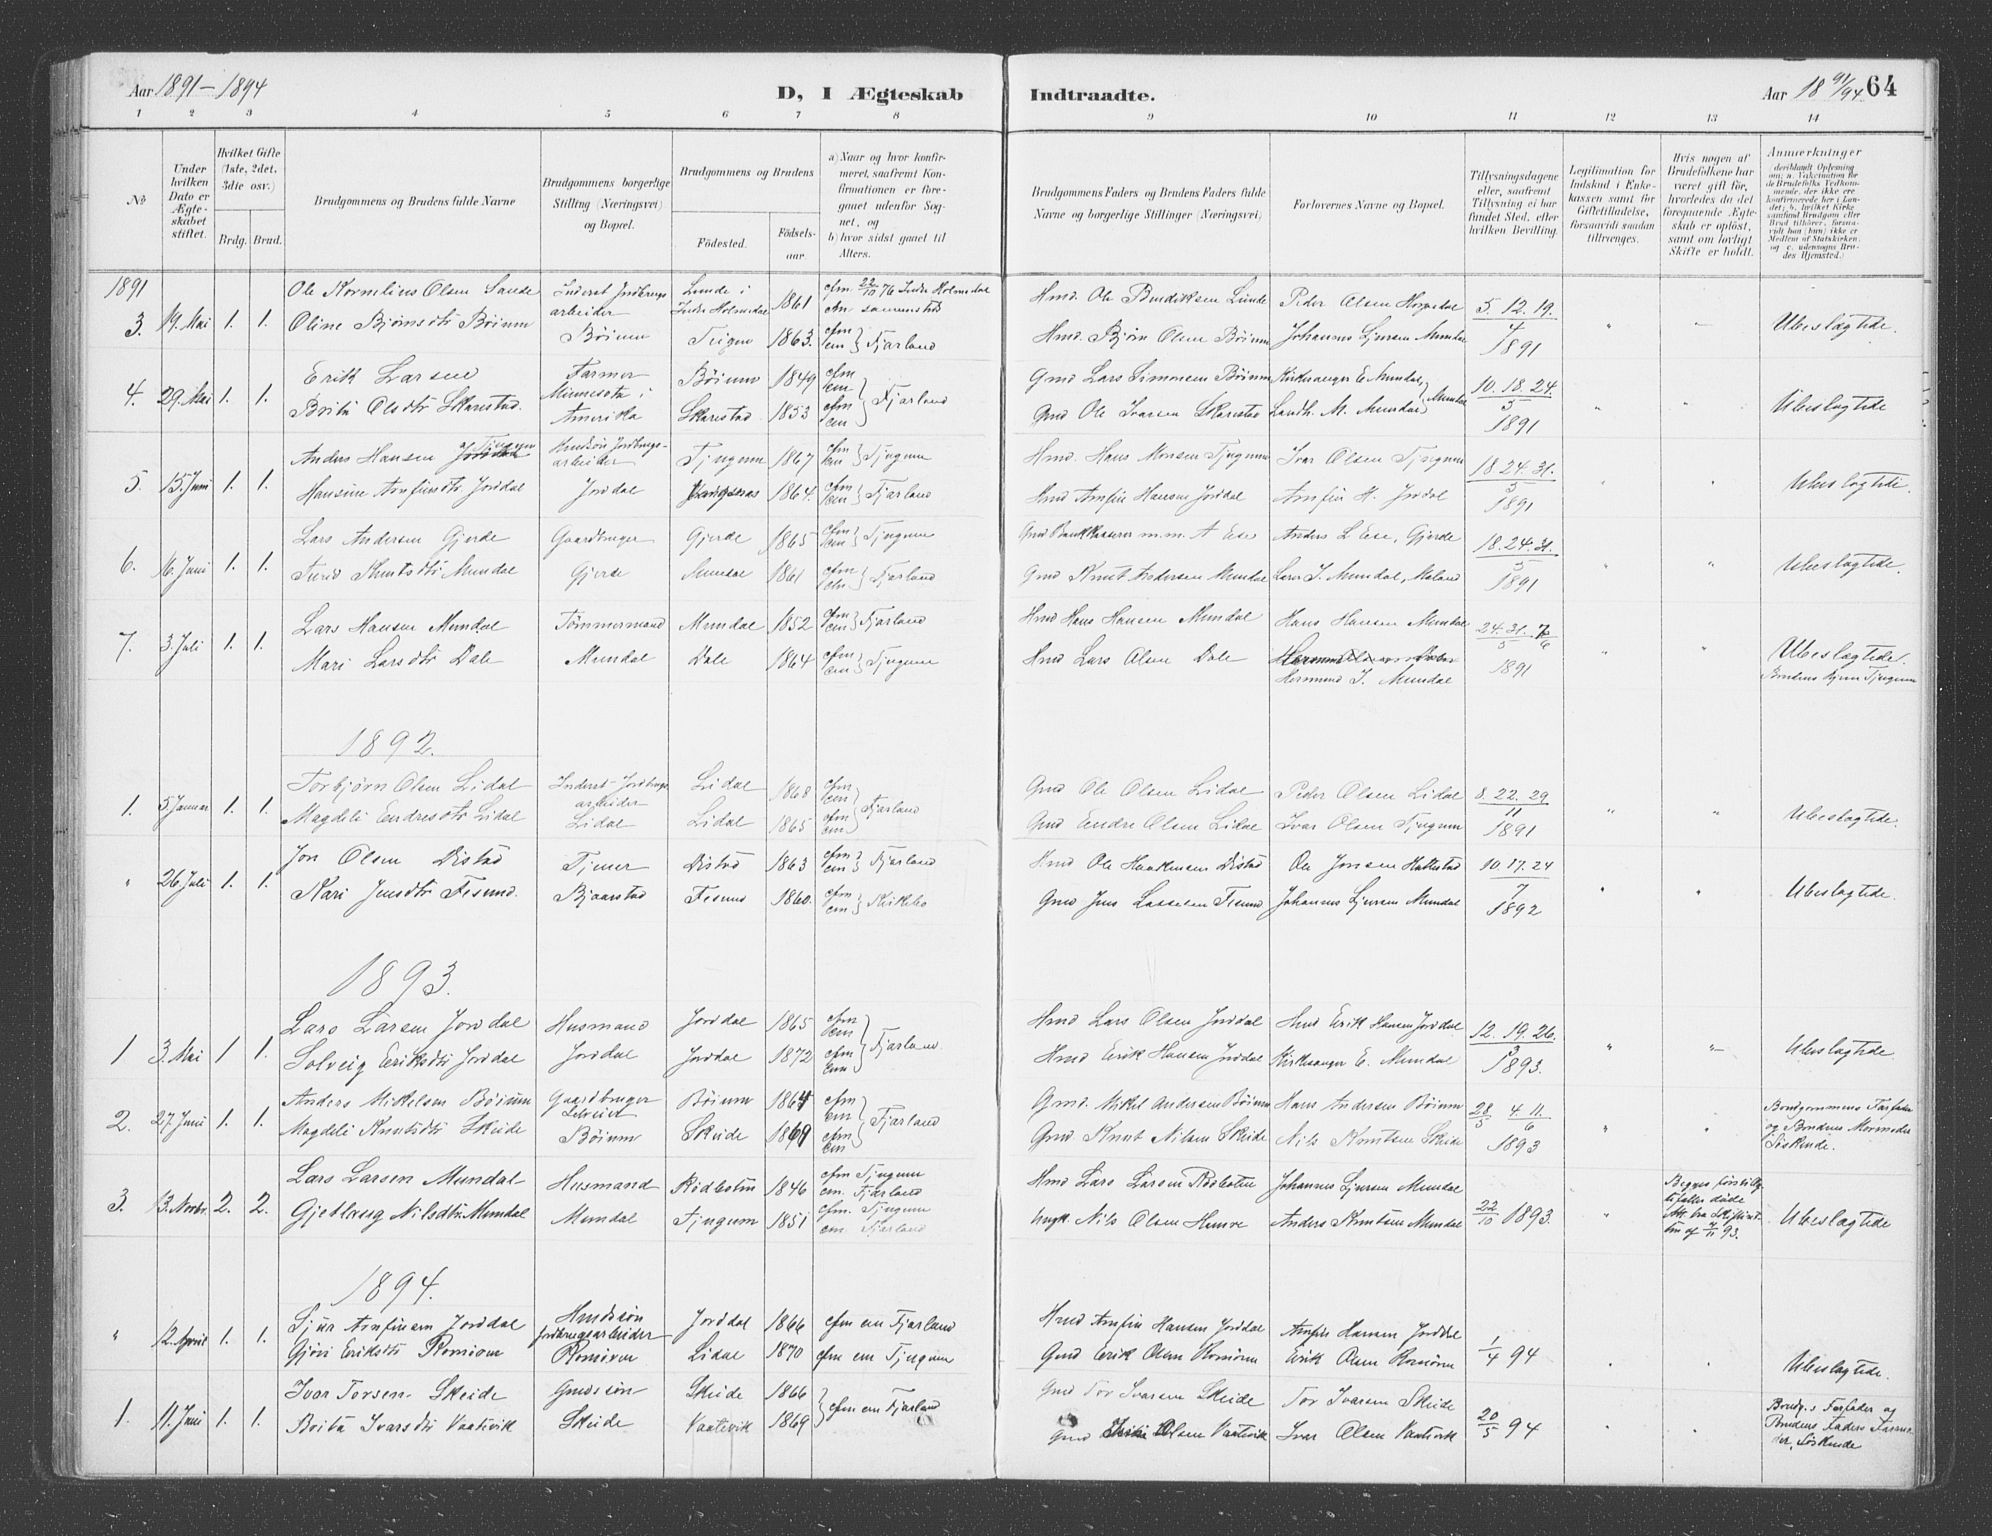 Aar 1891–1894
D, I Ægteskab Indtraadte.
Aar 18 91/94 64
1 2 3 4 5 6 7 8 9 10 11 12 13 14
No
Under hvilken Dato er Ægteskabet stiftet.
Hvilket Gifte (1ste, 2det, 3die osv.)
Brdg. Brud.
Brudgommens og Brudens fulde Navne
Brudgommens borgerlige Stilling (Næringsvei) og Bopæl.
Brudgommens og Brudens
Födested.
Födsels-aar.
a) Naar og hvor konfirmeret, saafremt Konfirmationen er foregaaet udenfor Sognet, og
b) hvor sidst gaaet til Alters.
Brudgommens Faders og Brudens Faders fulde Navne og borgerlige Stillinger (Næringsvei)
Forlovernes Navne og Bopæl.
Tillysningsdagene eller, saafremt Tillysning ei har fundet Sted, efter hvilken Bevilling.
Legitimation for Indskud i Enkekassen samt for Giftetilladelse, forsaavidt saadan tiltrænges.
Hvis nogen af Brudefolkene har været gift för, hvorledes da det foregaaende Ægteskab er oplöst, samt om lovligt Skifte er holdt.
Anmærkninger
1891
3. 19. Mai 1. 1. Ole Kornelius Olsen Lunde Inderst Jordbrugsarbeider Lunde i Indre Holmedal 1861 cfm. 22/10 76 Indre Holmedal Hmd. Ole Bendiksen Lunde Peder Olsen 5. 12. 19.
Oline Bjørnsdtr Bøium Bøium 1863. cfm em Fjærland Hmd. Bjørn Olsen Bøium Johannes Sjursen Mundal 4 1891 " Ubeslægtede.
4. 29. Mai 1. 1. Erik Larsen Farmer Bøium 1849 cfm em Gmd Lars Simonsen Bøium Kirkesanger E. Mundal 10. 18. 24.
Brita Olsdtr Skarestad. Minnesota i Amerika Skarestad 1853 cfm em Fjærland Gmd Ole Ivarsen Skarestad Landh. M. Mundal Mundal 5 1891 " Ubeslægtede
5. 15. Juni 1. 1. Anders Hansen Tjugum Jordbrugsarbeider Tjugum 1867 cfm em Tjugum Hmd. Hans Monsen Tjugum Ivar Olsen Tjugum 18. 24. 31.
Hansine Arnfinsdtr Jordal Jordal 1864. cfm em Fjærland Hmd Arnfin Hansen Jordal Arnfin H. Jordal 5 1891 " Ubeslægtede.
6. 16. Juni 1. 1. Lars Andersen Gjerde Gaardbruger Gjerde 1865 cfm em Tjugum Gmd Bankkasserer m.m. A Ese Anders L Ese, Gjerde 18. 24. 31.
Knutsdtr Mundal Gjerde Mundal 1861 cfm em Fjærland Gmd Knut Andersen Mundal Lars J. Mundal, 5 1891 " Ubeslægtede.
7. 3. Juli 1. 1. Lars Hansen Mundal Tømmermand Mundal 1852 cfm em Fjærland Hmd Hans Hansen Mundal Hans Hansen Mundal 24. 31. 7.
Mari Larsdtr Dale Mundal Dale 1864 cfm em Tjugum Hmd Lars Olsen Dale 5 6 1891 " Ubeslægtede.
Hermund J. Mundal Brudens hjem Tjugum
1892.
1. 5. Januar 1. 1. Torbjørn Olsen Lidal Inderst-Jordbrugsarbeider Lidal 1868 cfm em Gmd Ole Olsen Lidal Peder Olsen Lidal 8. 22. 29
Magdeli Endresdtr Lidal Lidal Lidal 1865 cfm em Fjærland Gmd Endre Olsen Lidal Ivar Olsen Tjugum 11 1891 " Ubeslægtede.
" 26. Juli 1. 1. Jon Olsen Distad Tjener Distad 1863 cfm em Fjærland Hmd Ole Haakensen Distad Ole Jonsen 10. 17. 24
Kari Jensdtr Fesund. Bjaastad Fesund 1860. cfm em Gmd Jens Lassesen Fesund Johannes Sjursen Mundal 7 1892 " Ubeslægtede.
1893.
1 3. Mai 1 1. Lars Larsen Jordal Husmand Jordal 1865 cfm em Hmd Lars Olsen Jordal Hmd Erik Hansen Jordal 12. 19. 26.
Solveig Eriksdtr Jordal Jordal Jordal 1872 cfm em Fjærland Hmd Erik Hansen Jordal Kirkesanger E. Mundal 3 1893. " Ubeslægtede.
2. 27. Juni 1. 1. Anders Mikelsen Bøium Gaardbruger Bøium 1864 cfm em Gmd. Mikel Andersen Bøium Hans Andersen Bøium 28/5 4. 11. Brudgommens Farfader
Magdeli Knutsdtr Skeide Bøium Skeide 1869 cfm em Fjærland Gmd Knut Nilsen Skeide Nils Knutsen Skeide 6 1893 " og Brudens Mormoder Søskende.
3. 13. Novbr. 2. 2. Lars Larsen Mundal Husmand Rødbotn 1846 cfm Tjugum em. Fjærland Hmd Lars Larsen Rødbotn Johannes Sjursen Mundal
Gjetlaug Nilsdtr Mundal Mundal Tjugum 1851 cfm. Tjugum em Fjærland Ungk. Nils Olsen Anders Knutsen Mundal 22/10 1893. " døde Att. fra Skifteretten af 93. Ubeslægtede
1894.
" 12. April 1. 1. Sjur Arnfinsen Jordal Hmdssøn Jordbrugsarbeider Jordal 1866 cfm em Fjærland Hmd Arnfin Hansen Jordal Arnfin Hansen Jordal
Gjøri Eriksdtr Romøren Romøren Lidal 1870 cfm em Tjugum Gmd Erik Olsen Romøren Erik Olsen Romøren 1/4 94 Ubeslægtede.
1. 11. Juni 1. 1. Ivar Torsen Skeide Gmdssøn Skeide 1866 cfm em Fjærland Gmd Tor Ivarsen Skeide Tor Ivarsen Skeide Brudg.s Farfader og
Brita Ivarsdtr Vaativik Skeide Vaativik 1869 Gmd Olsen Vaativik Ivar Olsen Vaativik 20/5 94 Brudens Faders Farmoder, Søskende